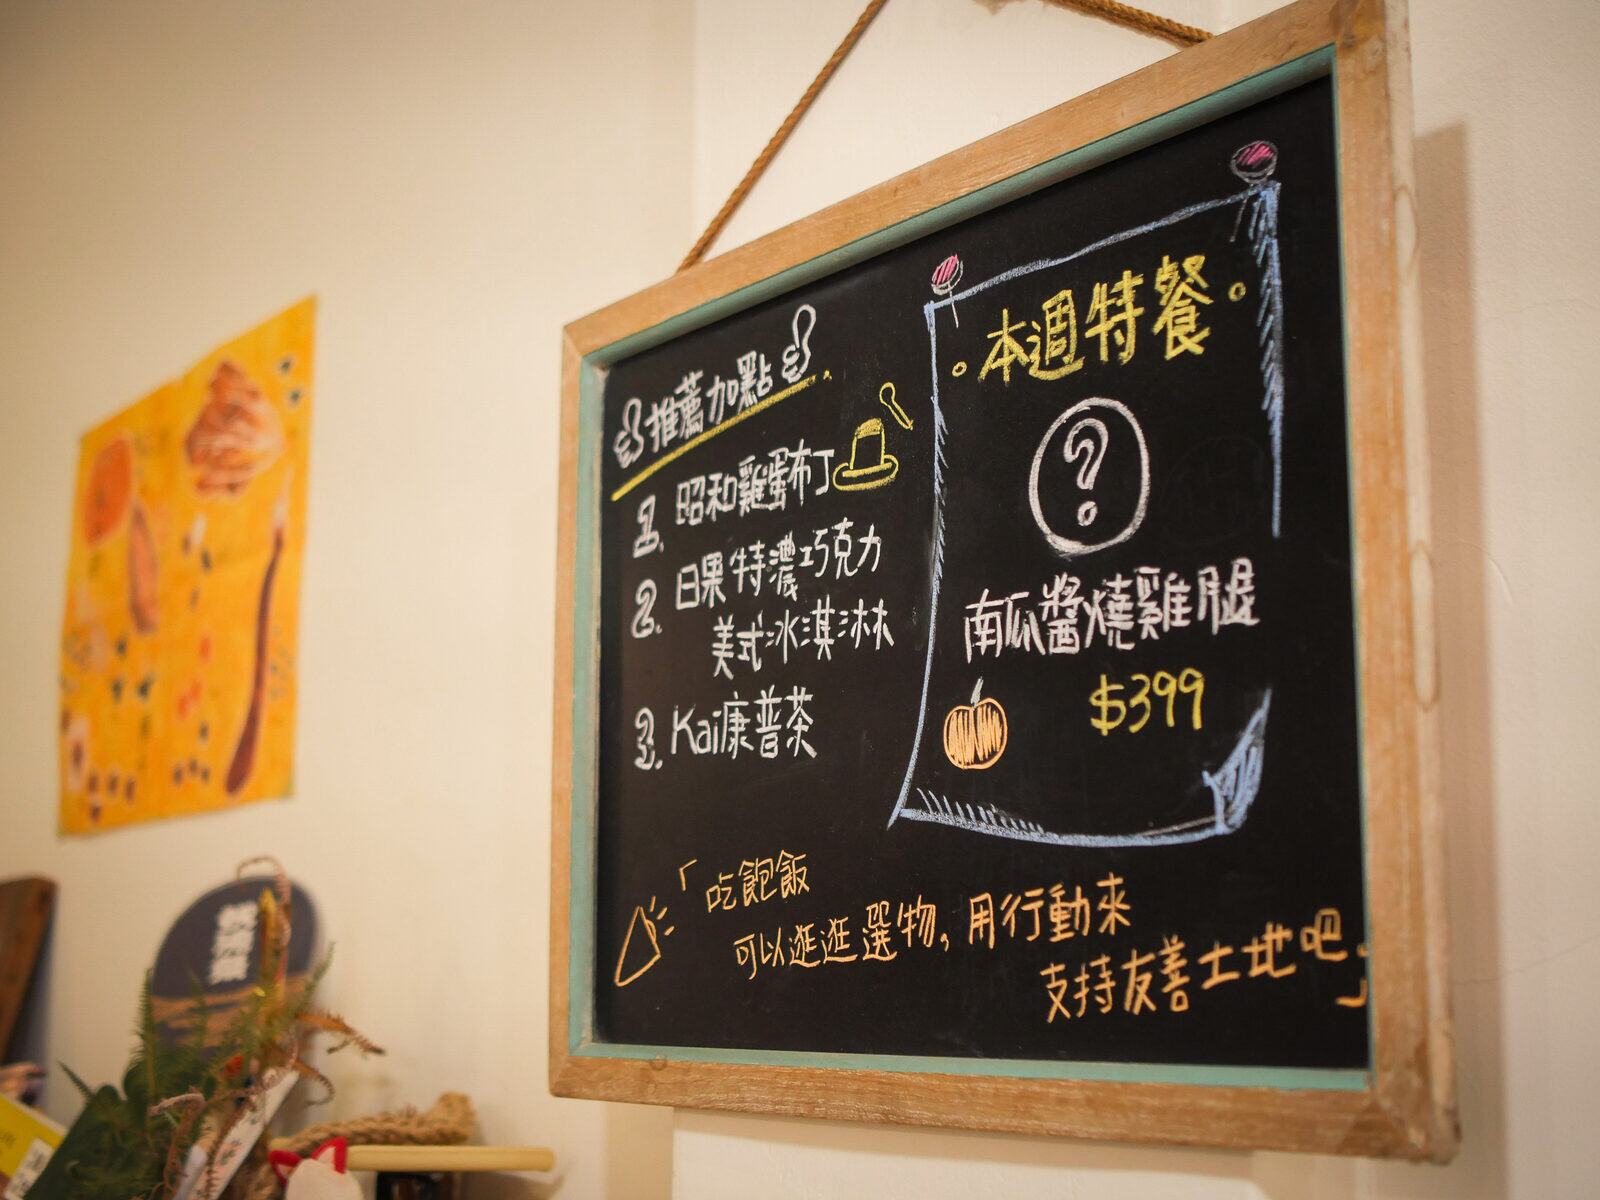 推薦加點
1. 昭和雞蛋布丁
2. 日果特濃巧克力
美式冰淇淋
3. Kai康普茶
本週特餐
?
南瓜醬燒雞腿
$399
「吃飽飯
可以逛逛選物,用行動來
支持友善土地吧」